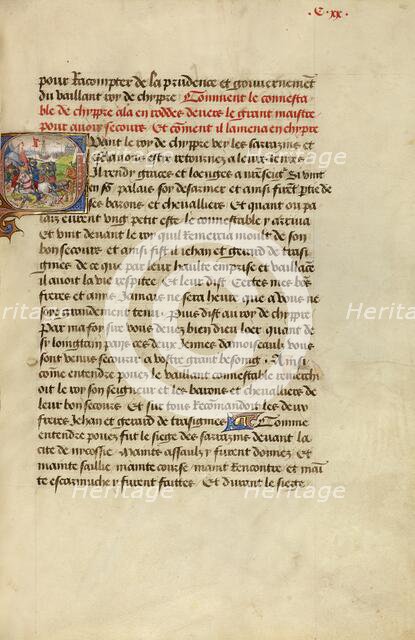 .C. xx.
pour Racompter de la prudence et gouvernement
du vaillant roy de chyppre Comment le connesta
ble de chyppre ala en roddes devers le grant maistre
pour avoir secours Et coment il lamena en chyppre
Quant le roy de chyppre vey les sarrazins et
relavous estre retournez a leurs tentes
Il rendy graces et loenges a nostre seigneur Si vint
en son palais soy desarmer et ainsi firent partie de
ses barons et chevalliers Et quant ou pa
lais eurent ung petit este le connestable y arriva
Et vint devant le roy qui Remercia moult de son
bon secours et ainsi fist il Jehan et gerard de trasi
gnies de ce que par leur haulte emprise et vaillance
il avoit la vie respitee Et leur dist Certes mes bos
freres et amis Jamais ne sera heure que a vous ne
soye grandement tenu Puis dist au roy de chyppre
Par ma foy sire vous devez bien dieu loer quant de
si longtain pays deux Jennes damoiseaulx vous
sont venus secourir a vostre grant besoing Ainsi
come entendre pouez le vaillant connestable remerchi
oit le roy son seigneur et les barons et chevalliers de
leur bon secours Et sur tous Recomandoit les deux
freres Jehan et gerard de trasignies Comme
entendre pouez fut le siege des sarrazins devant la
cite de nycossie Mains assaulz y furent donnez Et
mainte saillie mainte course maint Rencontre et mai
te escarmuche y furent faittes Et durant le siege
Heritage
Heritage
Heritage
Heritage
Heritage
Heritage